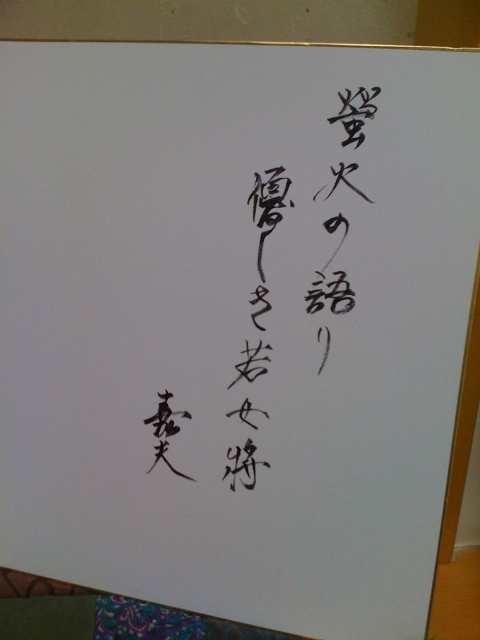 螢火の語り
優しき若女将
嘉夫